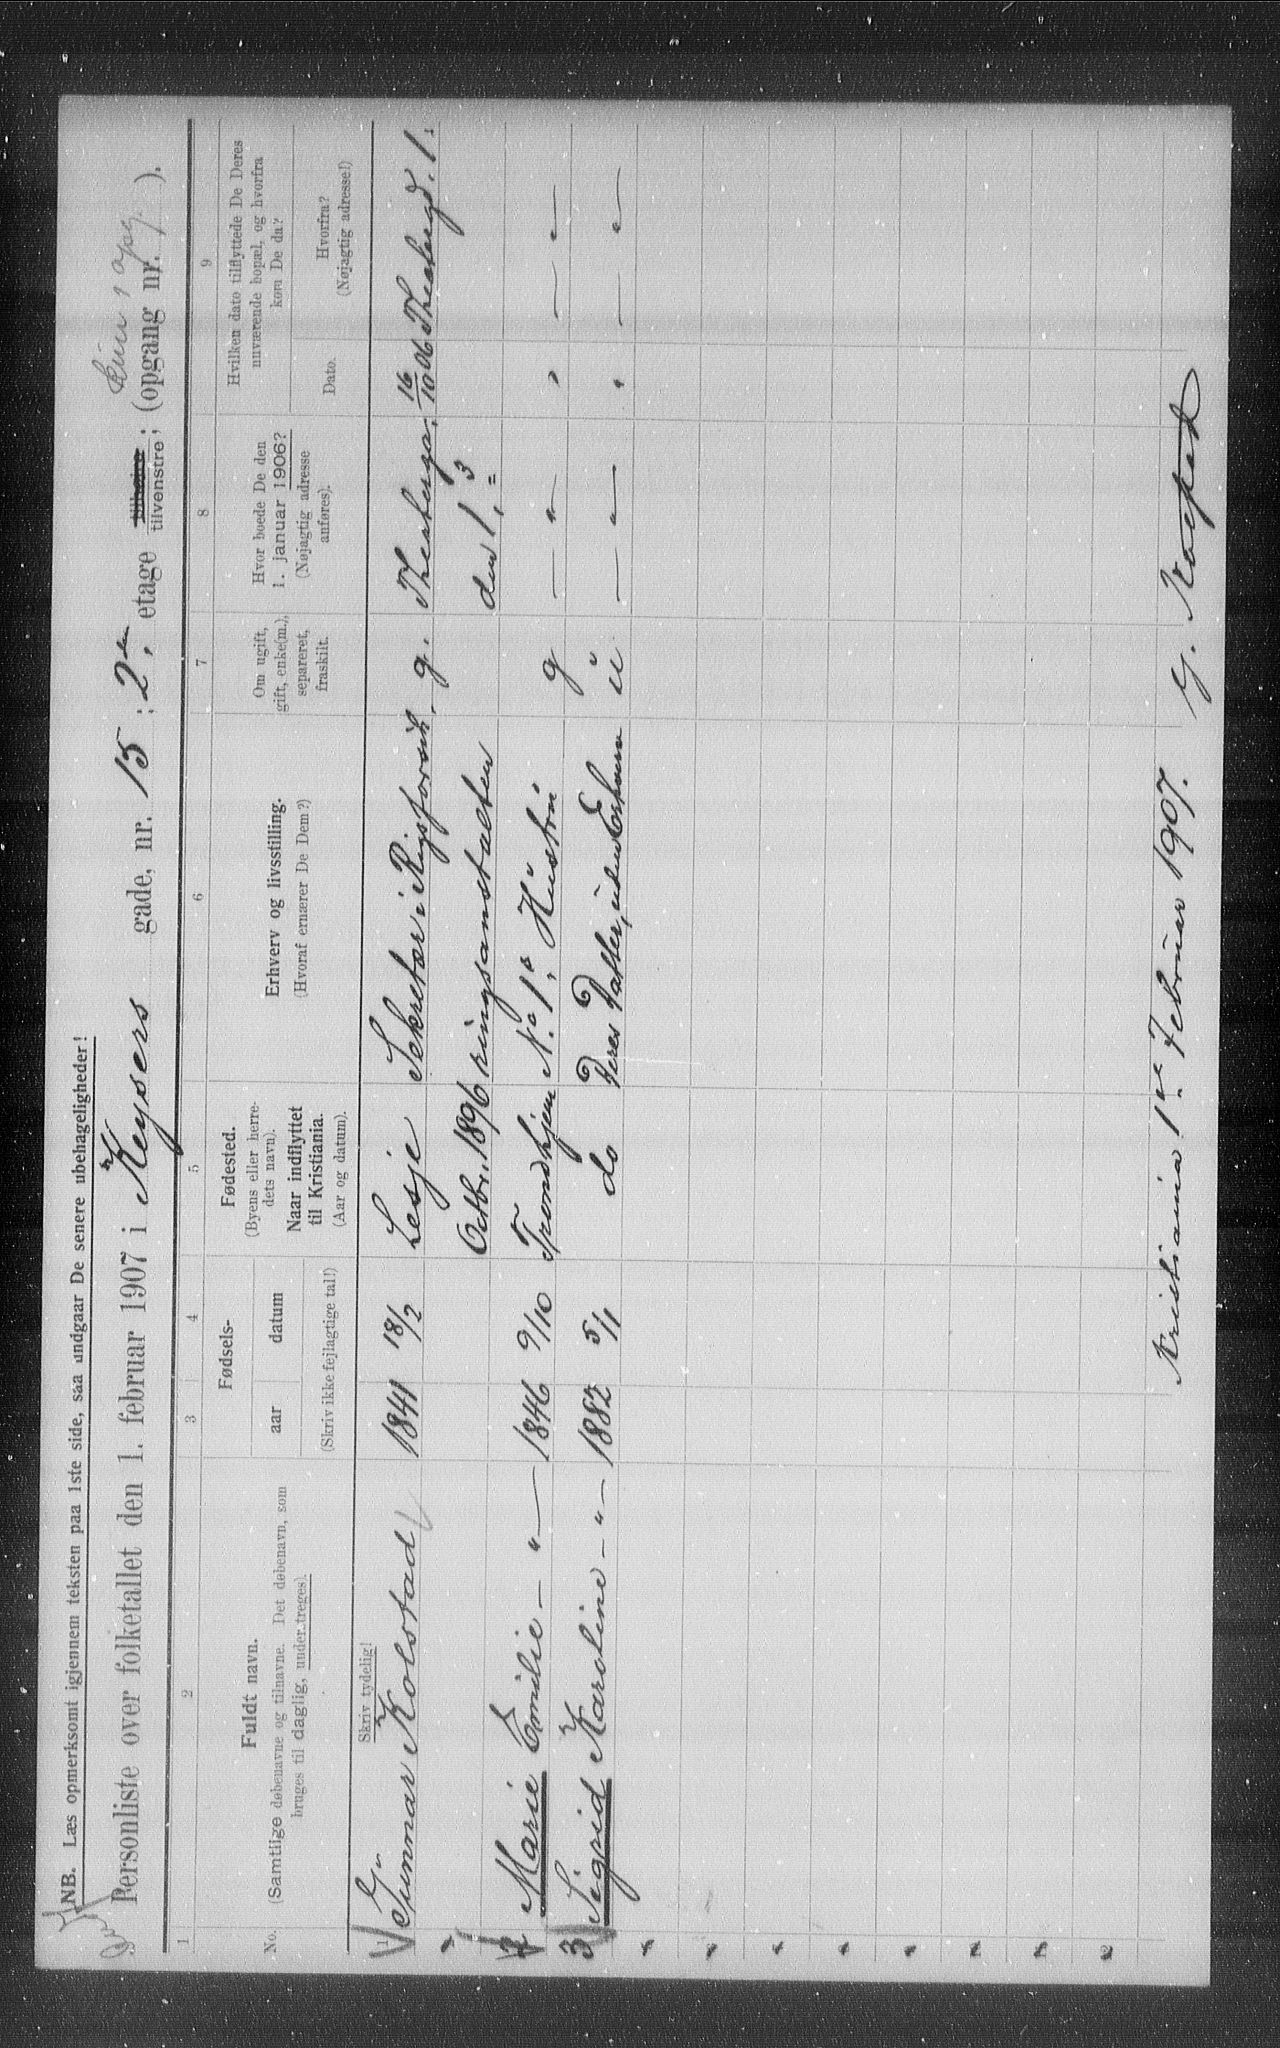 NB. Læs opmerksomt igjennem teksten paa 1ste side, saa undgaar De senere ubehageligheder!
Personliste over folketallet den 1. februar 1907 i Keysers gade, nr. 15; 2en etage tilhøire tilvenstre; (opgang nr. kun 1 opg. ).
1 2 3 4 5 6 7 8 9
No.
Fuldt navn.
(Samtlige døbenavne og tilnavne. Det døbenavn, som
bruges til daglig, understreges).
Fødsels-
aar datum
(Skriv ikke fejlagtige tal!)
Fødested.
(Byens eller herre-
dets navn).
Naar indflyttet
til Kristiania.
(Aar og datum).
Erhverv og livsstilling.
(Hvoraf ernærer De Dem?)
Om ugift,
gift, enke(m.),
separeret,
fraskilt.
Hvor boede De den
1. januar 1906?
(Nøjagtig adresse
anføres).
Hvilken dato tilflyttede De Deres
nuværende bopæl, og hvorfra
kom De da?
Dato.
Hvorfra?
(Nøjagtig adresse!)
Skriv tydelig!
1 Gunnar Kolstad 1841 18/2 Lesje Sekretær i Rigsforsik g. 16/10 06
Octbr. 1896 ringsanstalten
2 Marie Emilie — " — 1846 9/10 Trondhjem No 1s Hustru g — " — " — " —
3 Sigrid Karoline — " — 1882 5/1 do Deres Datter, uden Erhverv u — " — " — " —
Kristiania 1ste Februar 1907. G. Kolstad